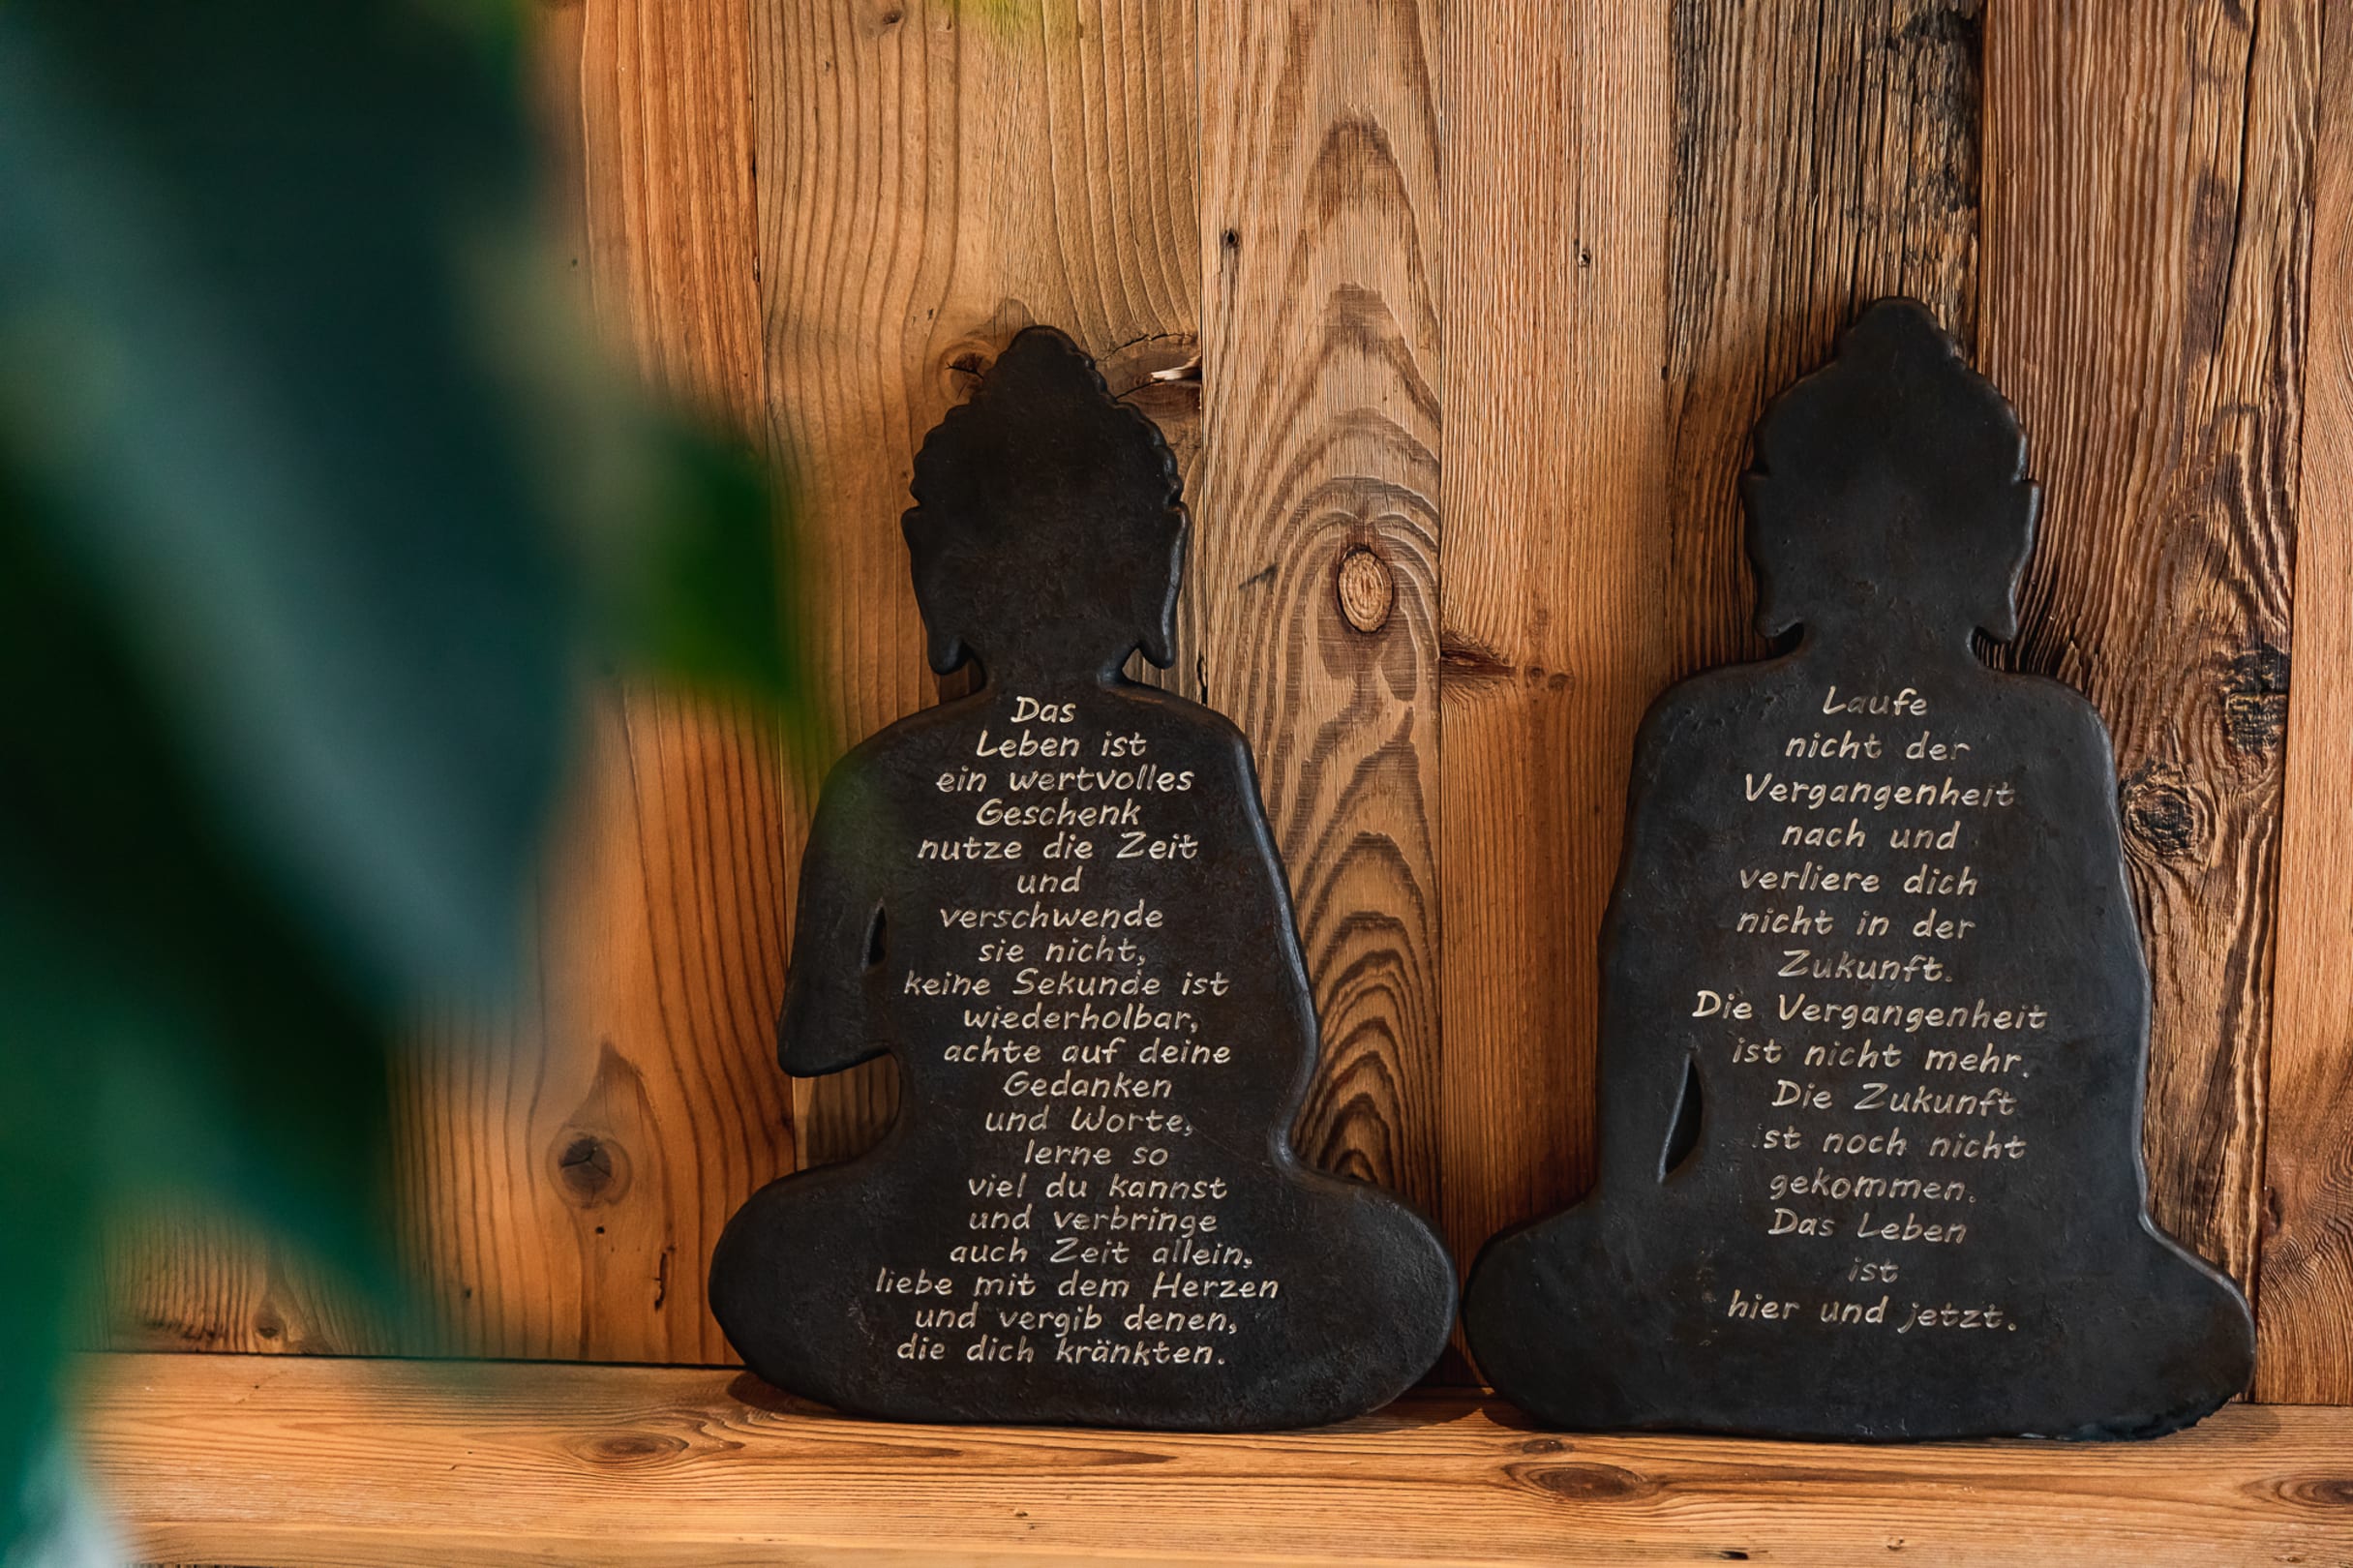 Das
Leben ist
ein wertvolles
Geschenk
nutze die Zeit
und
verschwende
sie nicht,
keine Sekunde ist
wiederholbar,
achte auf deine
Gedanken
und Worte,
lerne so
viel du kannst
und verbringe
auch Zeit allein,
liebe mit dem Herzen
und vergib denen,
die dich kränkten.
Laufe
nicht der
Vergangenheit
nach und
verliere dich
nicht in der
Zukunft.
Die Vergangenheit
ist nicht mehr.
Die Zukunft
ist noch nicht
gekommen.
Das Leben
ist
hier und jetzt.